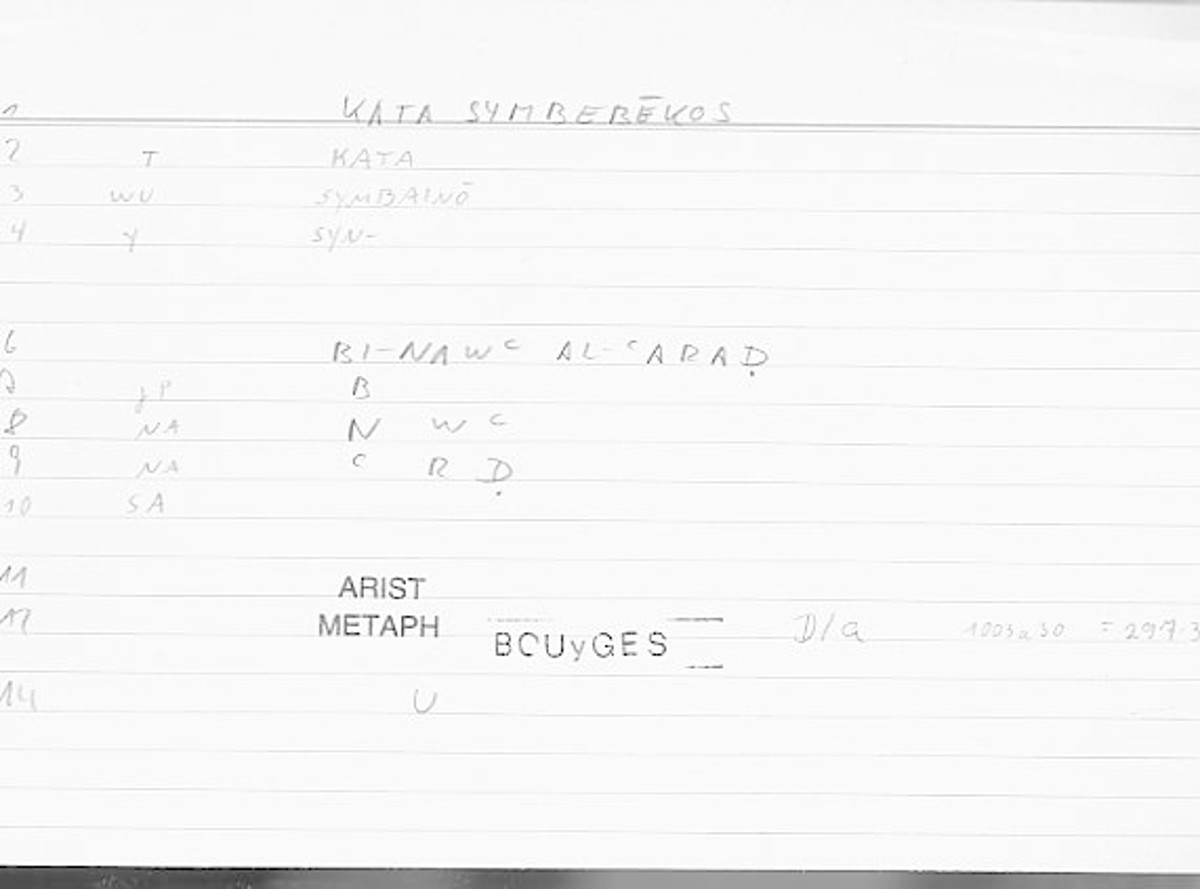 1 KATA SYMBEBĒKOS
2 T KATA
3 WU SYMBAINŌ
4 Y SYN-
6 BI-NAWC AL-CARAḌ
7 JP B
8 NA N W C
9 NA C R Ḍ
10 SA
11 ARIST
12 METAPH BOUyGES D/a 1003a30 = 297.3
14 U